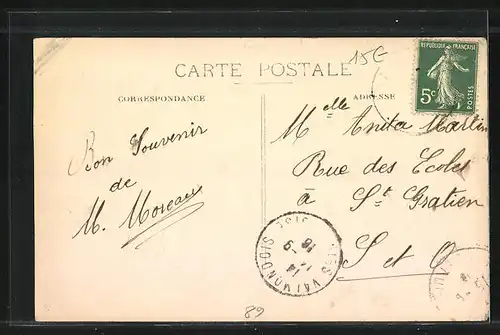 15€
CARTE POSTALE
RÉPUBLIQUE FRANÇAISE
5c
POSTES
CORRESPONDANCE
ADRESSE
Bon Souvenir
de
M. Moreau
Melle Anita Martin
Rue des Ecoles
à St Gratien
S et O
VALMONDOIS
89